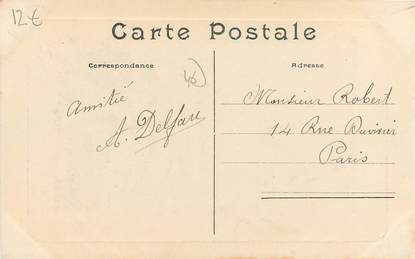 12€
Carte Postale
Correspondance
Adresse
46
Amitié
A. Delfau
Monsieur Robert
14 Rue Duvivier
Paris